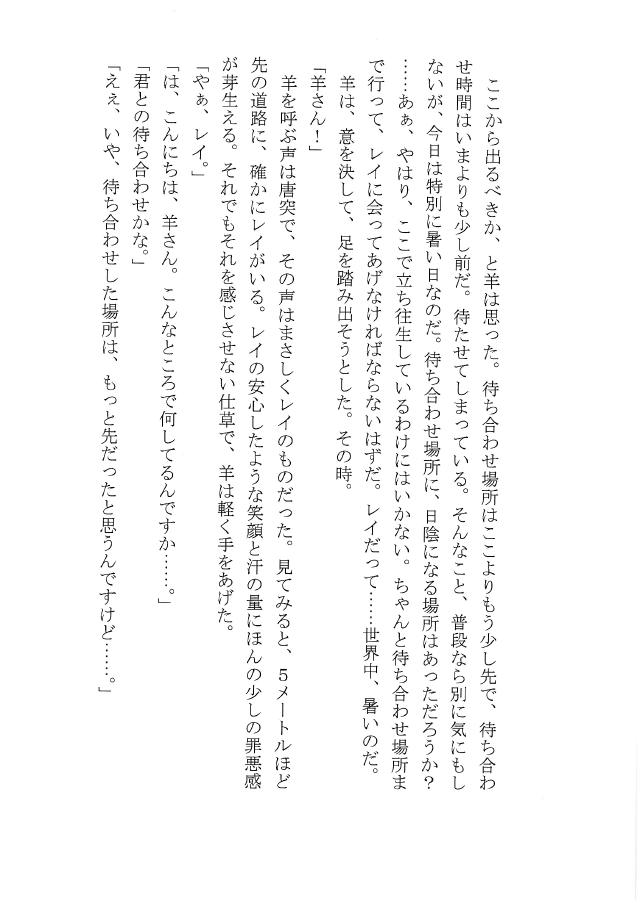 ここから出るべきか、と羊は思った。待ち合わせ場所はここよりもう少し先で、待ち合わ
せ時間はいまよりも少し前だ。待たせてしまっている。そんなこと、普段なら別に気にもし
ないが、今日は特別に暑い日なのだ。待ち合わせ場所に、日陰になる場所はあっただろうか？
……あぁ、やはり、ここで立ち往生しているわけにはいかない。ちゃんと待ち合わせ場所ま
で行って、レイに会ってあげなければならないはずだ。レイだって……世界中、暑いのだ。
羊は、意を決して、足を踏み出そうとした。その時。
「羊さん！」
羊を呼ぶ声は唐突で、その声はまさしくレイのものだった。見てみると、５メートルほど
先の道路に、確かにレイがいる。レイの安心したような笑顔と汗の量にほんの少しの罪悪感
が芽生える。それでもそれを感じさせない仕草で、羊は軽く手をあげた。
「やぁ、レイ。」
「は、こんにちは、羊さん。こんなところで何してるんですか……。」
「君との待ち合わせかな。」
「えぇ、いや、待ち合わせした場所は、もっと先だったと思うんですけど……。」